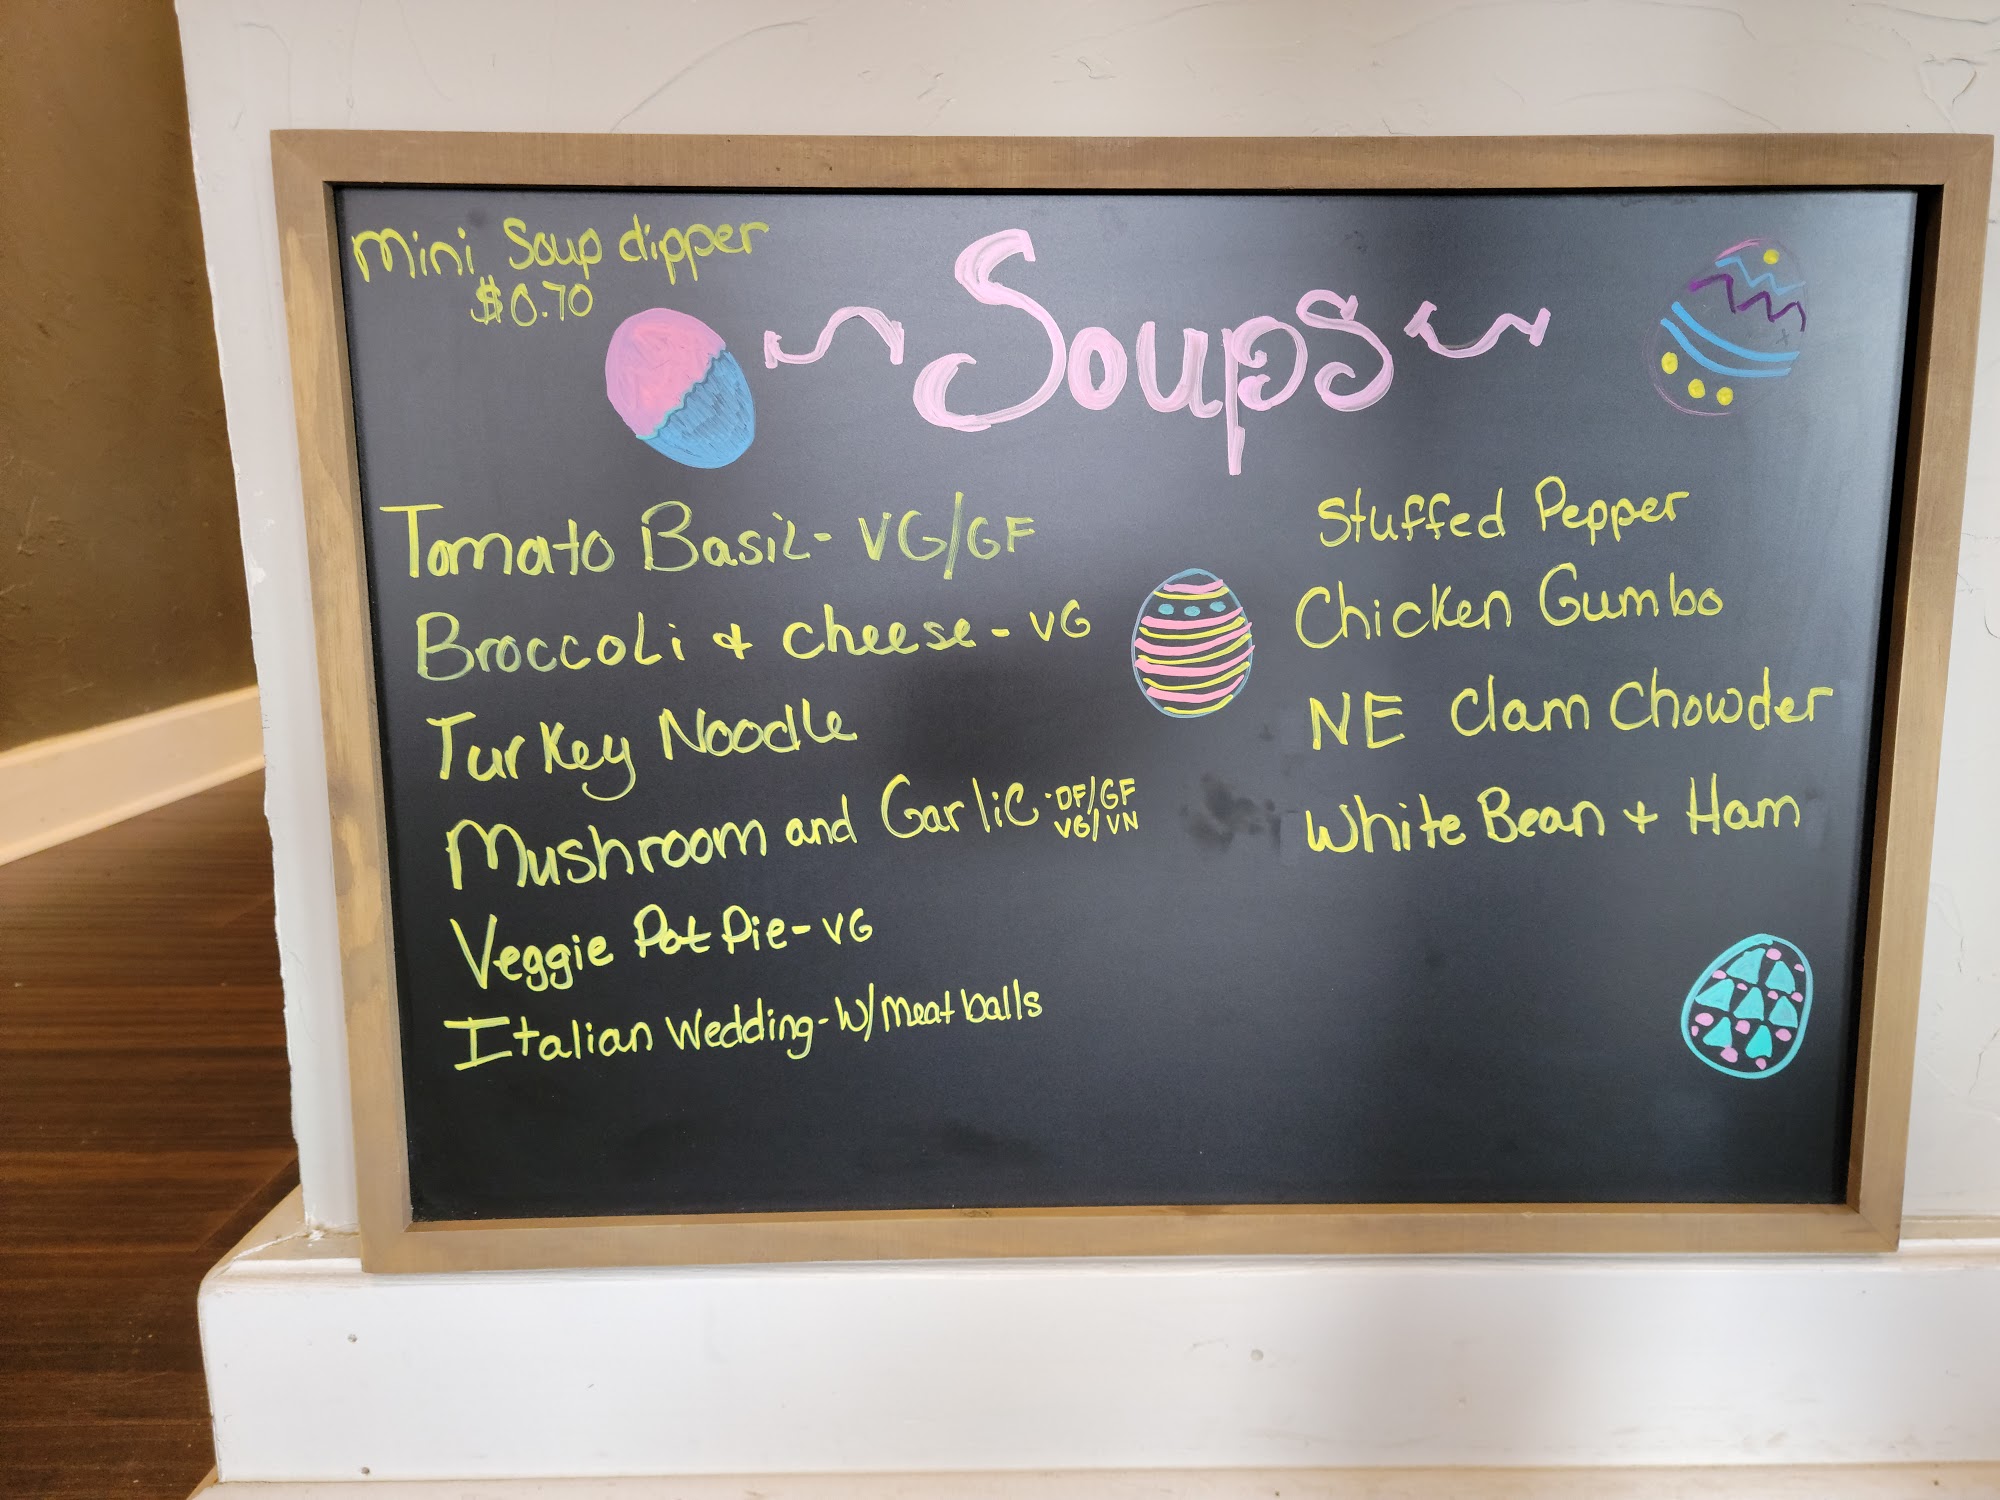 Mini Soup dipper
$0.70
Soups
Tomato Basil - VG/GF
Broccoli + cheese - VG
Turkey Noodle
Mushroom and Garlic - DF/GF
VG/VN
Veggie Pot Pie - VG
Italian Wedding - W/ Meatballs
Stuffed Pepper
Chicken Gumbo
NE Clam Chowder
White Bean + Ham